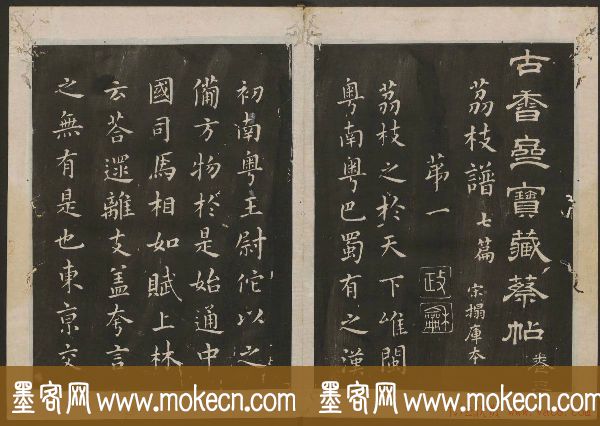 古香齋寶藏蔡帖 卷三
荔枝譜 七篇 宋搨庫本
第一
荔枝之於天下唯閩
粤南粤巴蜀有之漢
初南粤王尉佗以之
備方物於是始通中
國司馬相如賦上林
云荅遝離支盖夸言
之無有是也東京交
墨客网 www.mokecn.com 墨客网 www.mokecn.com